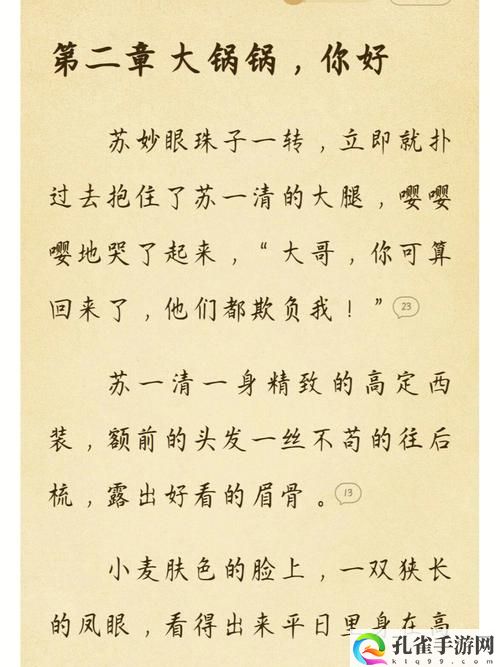 第二章 大锅锅，你好
苏妙眼珠子一转，立即就扑
过去抱住了苏一清的大腿，嘤嘤
嘤地哭了起来，“大哥，你可算
回来了，他们都欺负我！”
23
苏一清一身精致的高定西
装，额前的头发一丝不苟的往后
梳，露出好看的眉骨。
13
小麦肤色的脸上，一双狭长
的凤眼，看得出来平日里身在高
孔雀手游网
www.ktq99.com